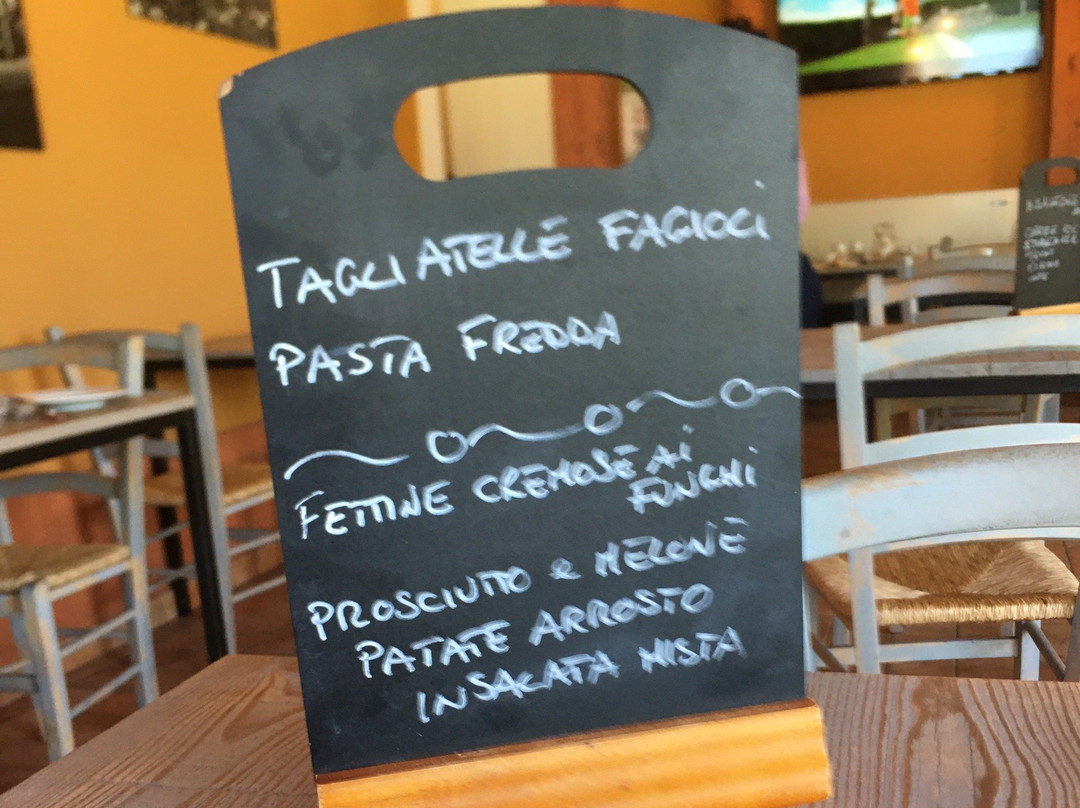 TAGLIATELLE FAGIOLI
PASTA FREDDA
FETTINE CREMOSE AI
FUNGHI
PROSCIUTTO e MELONE
PATATE ARROSTO
INSALATA MISTA